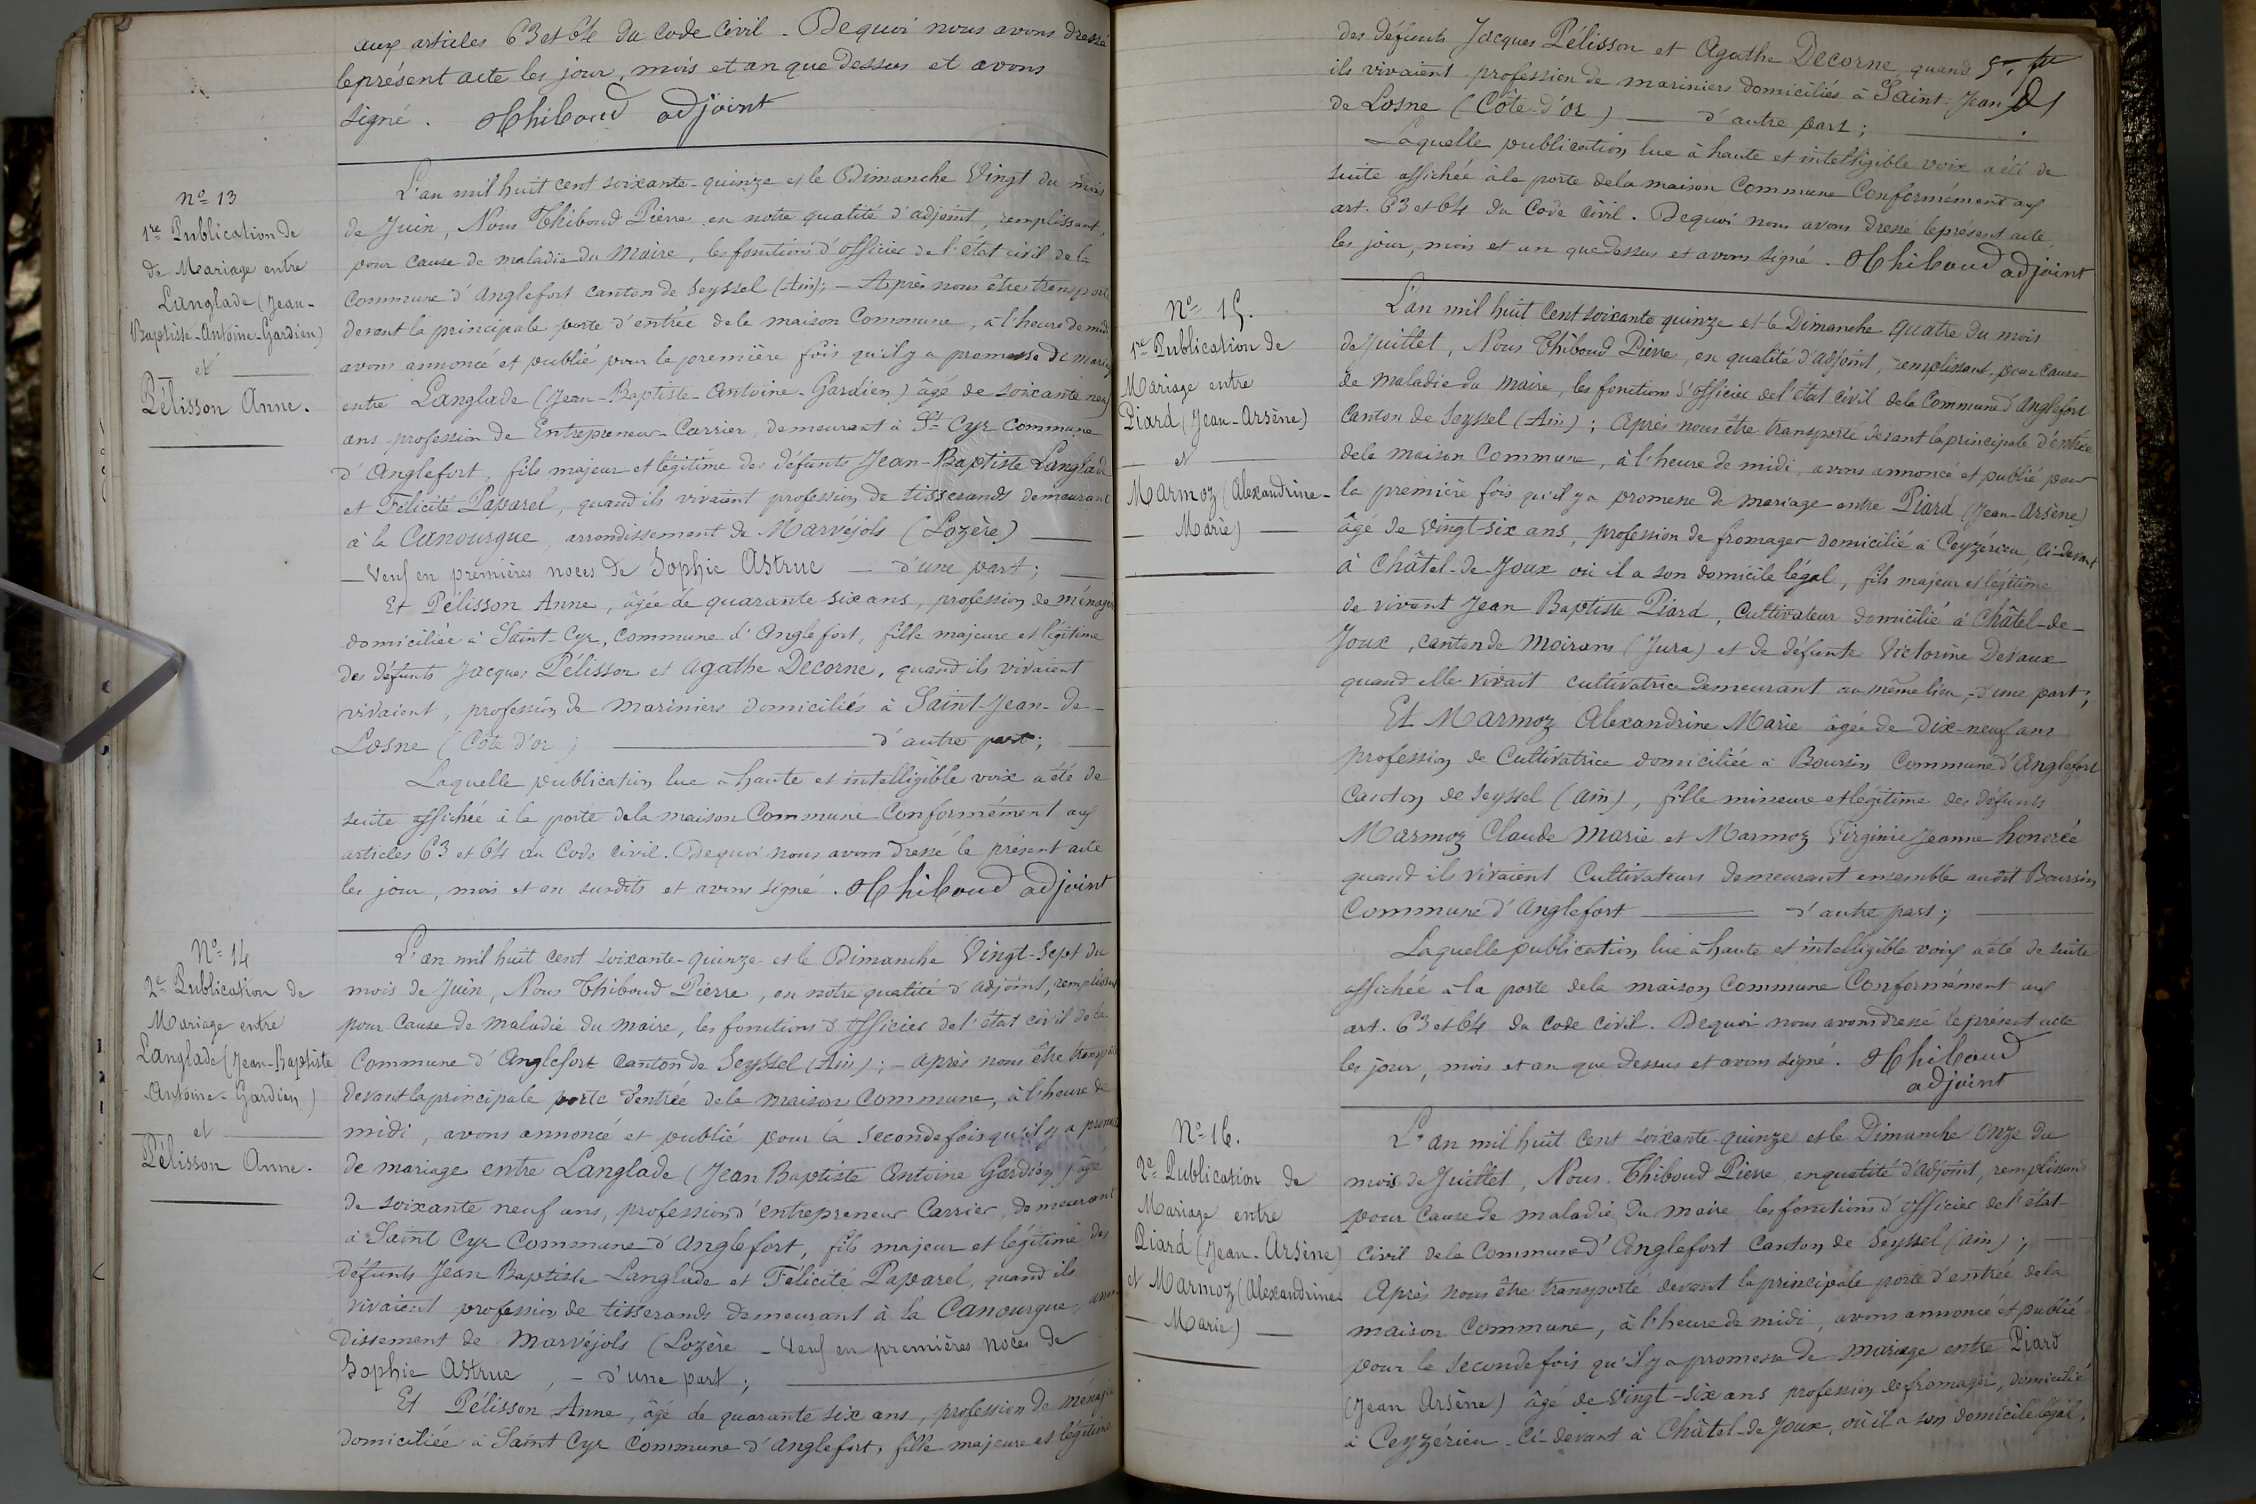 aux articles 63 et 64 du Code Civil _ De quoi nous avons dressé
le présent acte les jour, mois et an que dessus et avons
signé. Thiboud adjoint
N° 13
1re Publication de
de Mariage entre
Langlade (Jean-
Baptiste-Antoine-Gardien)
et
Pélisson Anne.
L'an mil huit cent soixante-quinze et le Dimanche Vingt du mois
de Juin, Nous Thiboud Pierre en notre qualité d'adjoint, remplissant,
pour cause de maladie du Maire, les fonctions d'officier de l'état civil de la
Commune d'Anglefort canton de Seyssel (Ain); — Après nous être transporté
devant la principale porte d'entrée de la maison Commune, à l'heure de midi
avons annoncé et publié pour la première fois qu'il y a promesse de mariage
entre Langlade (Jean-Baptiste-Antoine-Gardien) âgé de soixante neuf
ans profession de Entrepreneur-Carrier, demeurant à St Cyr Commune
d'Anglefort, fils majeur et légitime des défunts Jean-Baptiste Langlade
et Félicité Paparel, quand ils vivaient profession de tisserands demeurant
à la Canourgue, arrondissement de Marvéjols (Lozère) —
— Veuf en premières noces de Sophie Astruc — d'une part; —
Et Pélisson Anne, âgée de quarante six ans, profession de ménagère
domiciliée à Saint-Cyr, Commune d'Anglefort, fille majeure et légitime
des défunts Jacques Pélisson et Agathe Decorne, quand ils vivaient
vivaient, profession de mariniers domiciliés à Saint-Jean-de-
Losne (Côte d'or) ; — d'autre part; —
Laquelle publication lue à haute et intelligible voix a été de
suite affichée à la porte de la maison Commune Conformément aux
articles 63 et 64 du Code Civil. De quoi nous avons dressé le présent acte
les jour, mois et an susdits et avons signé. Thiboud adjoint
N° 14
2e Publication de
Mariage entre
Langlade (Jean-Baptiste
Antoine-Gardien)
et
Pélisson Anne.
L'an mil huit cent soixante-quinze et le Dimanche Vingt-Sept du
mois de Juin, Nous Thiboud Pierre, en notre qualité d'adjoint, remplissant
pour cause de maladie du maire, les fonctions d'officier de l'état civil de la
Commune d'Anglefort Canton de Seyssel (Ain) ; — après nous être transporté
devant la principale porte d'entrée de la maison Commune, à l'heure de
midi, avons annoncé et publié pour la seconde fois qu'il y a promesse
de mariage entre Langlade (Jean Baptiste Antoine Gardien) âgé
de soixante neuf ans, profession d'entrepreneur Carrier, demeurant
à Saint Cyr Commune d'Anglefort, fils majeur et légitime des
défunts Jean Baptiste Langlade et Félicité Paparel, quand ils
vivaient profession de tisserands demeurant à la Canourgue, arron
dissement de Marvéjols (Lozère — Veuf en premières noces de
Sophie Astruc, — d'une part; —
Et Pélisson Anne, âgé de quarante six ans, profession de ménagère
domiciliée à Saint Cyr Commune d'Anglefort, fille majeure et légitime
des défunts Jacques Pélisson et Agathe Decorne, quand
ils vivaient profession de mariniers domiciliés à Saint-Jean
de Losne (Côte-d'or) — d'autre part; —
Laquelle publication lue à haute et intelligible voix a été de
suite affichée à la porte de la maison Commune Conformément aux
art. 63 et 64 du Code Civil. De quoi nous avons dressé le présent acte
les jour, mois et an que dessus et avons signé. Thiboud adjoint
N° 15.
1re Publication de
Mariage entre
Piard (Jean-Arsène)
et
Marmoz (Alexandrine-
Marie)
L'an mil huit cent soixante quinze et le Dimanche quatre du mois
de Juillet, Nous Thiboud Pierre, en qualité d'adjoint, remplissant, pour cause
de maladie du maire, les fonctions d'officier de l'état civil de la Commune d'Anglefort
Canton de Seyssel (Ain) ; Après nous être transporté devant la principale d'entrée
de la maison Commune, à l'heure de midi, avons annoncé et publié pour
la première fois qu'il y a promesse de mariage entre Piard (Jean-Arsène)
âgé de vingt-six ans, profession de fromager domicilié à Ceyzérieu, Ci-devant
à Châtel-de-Joux où il a son domicile légal, fils majeur et légitime
de vivant Jean Baptiste Piard, Cultivateur domicilié à Châtel-de-
Joux, canton de Moirans (Jura) et de défunte Victorine Devaux
quand elle vivait cultivatrice demeurant au même lieu, d'une part;
Et Marmoz Alexandrine Marie âgée de dix-neuf ans
profession de Cultivatrice domiciliée à Boursin Commune d'Anglefort
Canton de Seyssel (Ain), fille mineure et légitime des défunts
Marmoz Claude Marie et Marmoz Virginie Jeanne honorée
quand ils vivaient Cultivateurs demeurant ensemble au dit Boursin
Commune d'Anglefort — d'autre part; —
Laquelle publication lue à haute et intelligible voix a été de suite
affichée à la porte de la maison Commune Conformément aux
art. 63 et 64 du Code civil. De quoi nous avons dressé le présent acte
les jour, mois et an que dessus et avons signé. Thiboud
adjoint
N° 16.
2e Publication de
Mariage entre
Piard (Jean-Arsène)
et Marmoz (Alexandrine
Marie)
L'an mil huit cent soixante-quinze et le Dimanche onze du
mois de Juillet, Nous Thiboud Pierre, en qualité d'adjoint, remplissant
pour cause de maladie du maire les fonctions d'officier de l'état
civil de la Commune d'Anglefort Canton de Seyssel (Ain) ; —
Après nous être transporté devant la principale porte d'entrée de la
maison Commune, à l'heure de midi, avons annoncé et publié
pour la seconde fois qu'il y a promesse de mariage entre Piard
(Jean Arsène) âgé de vingt-six ans profession de fromager, domicilié
à Ceyzérieu, Ci-devant à Châtel-de-Joux, où il a son domicile légal,